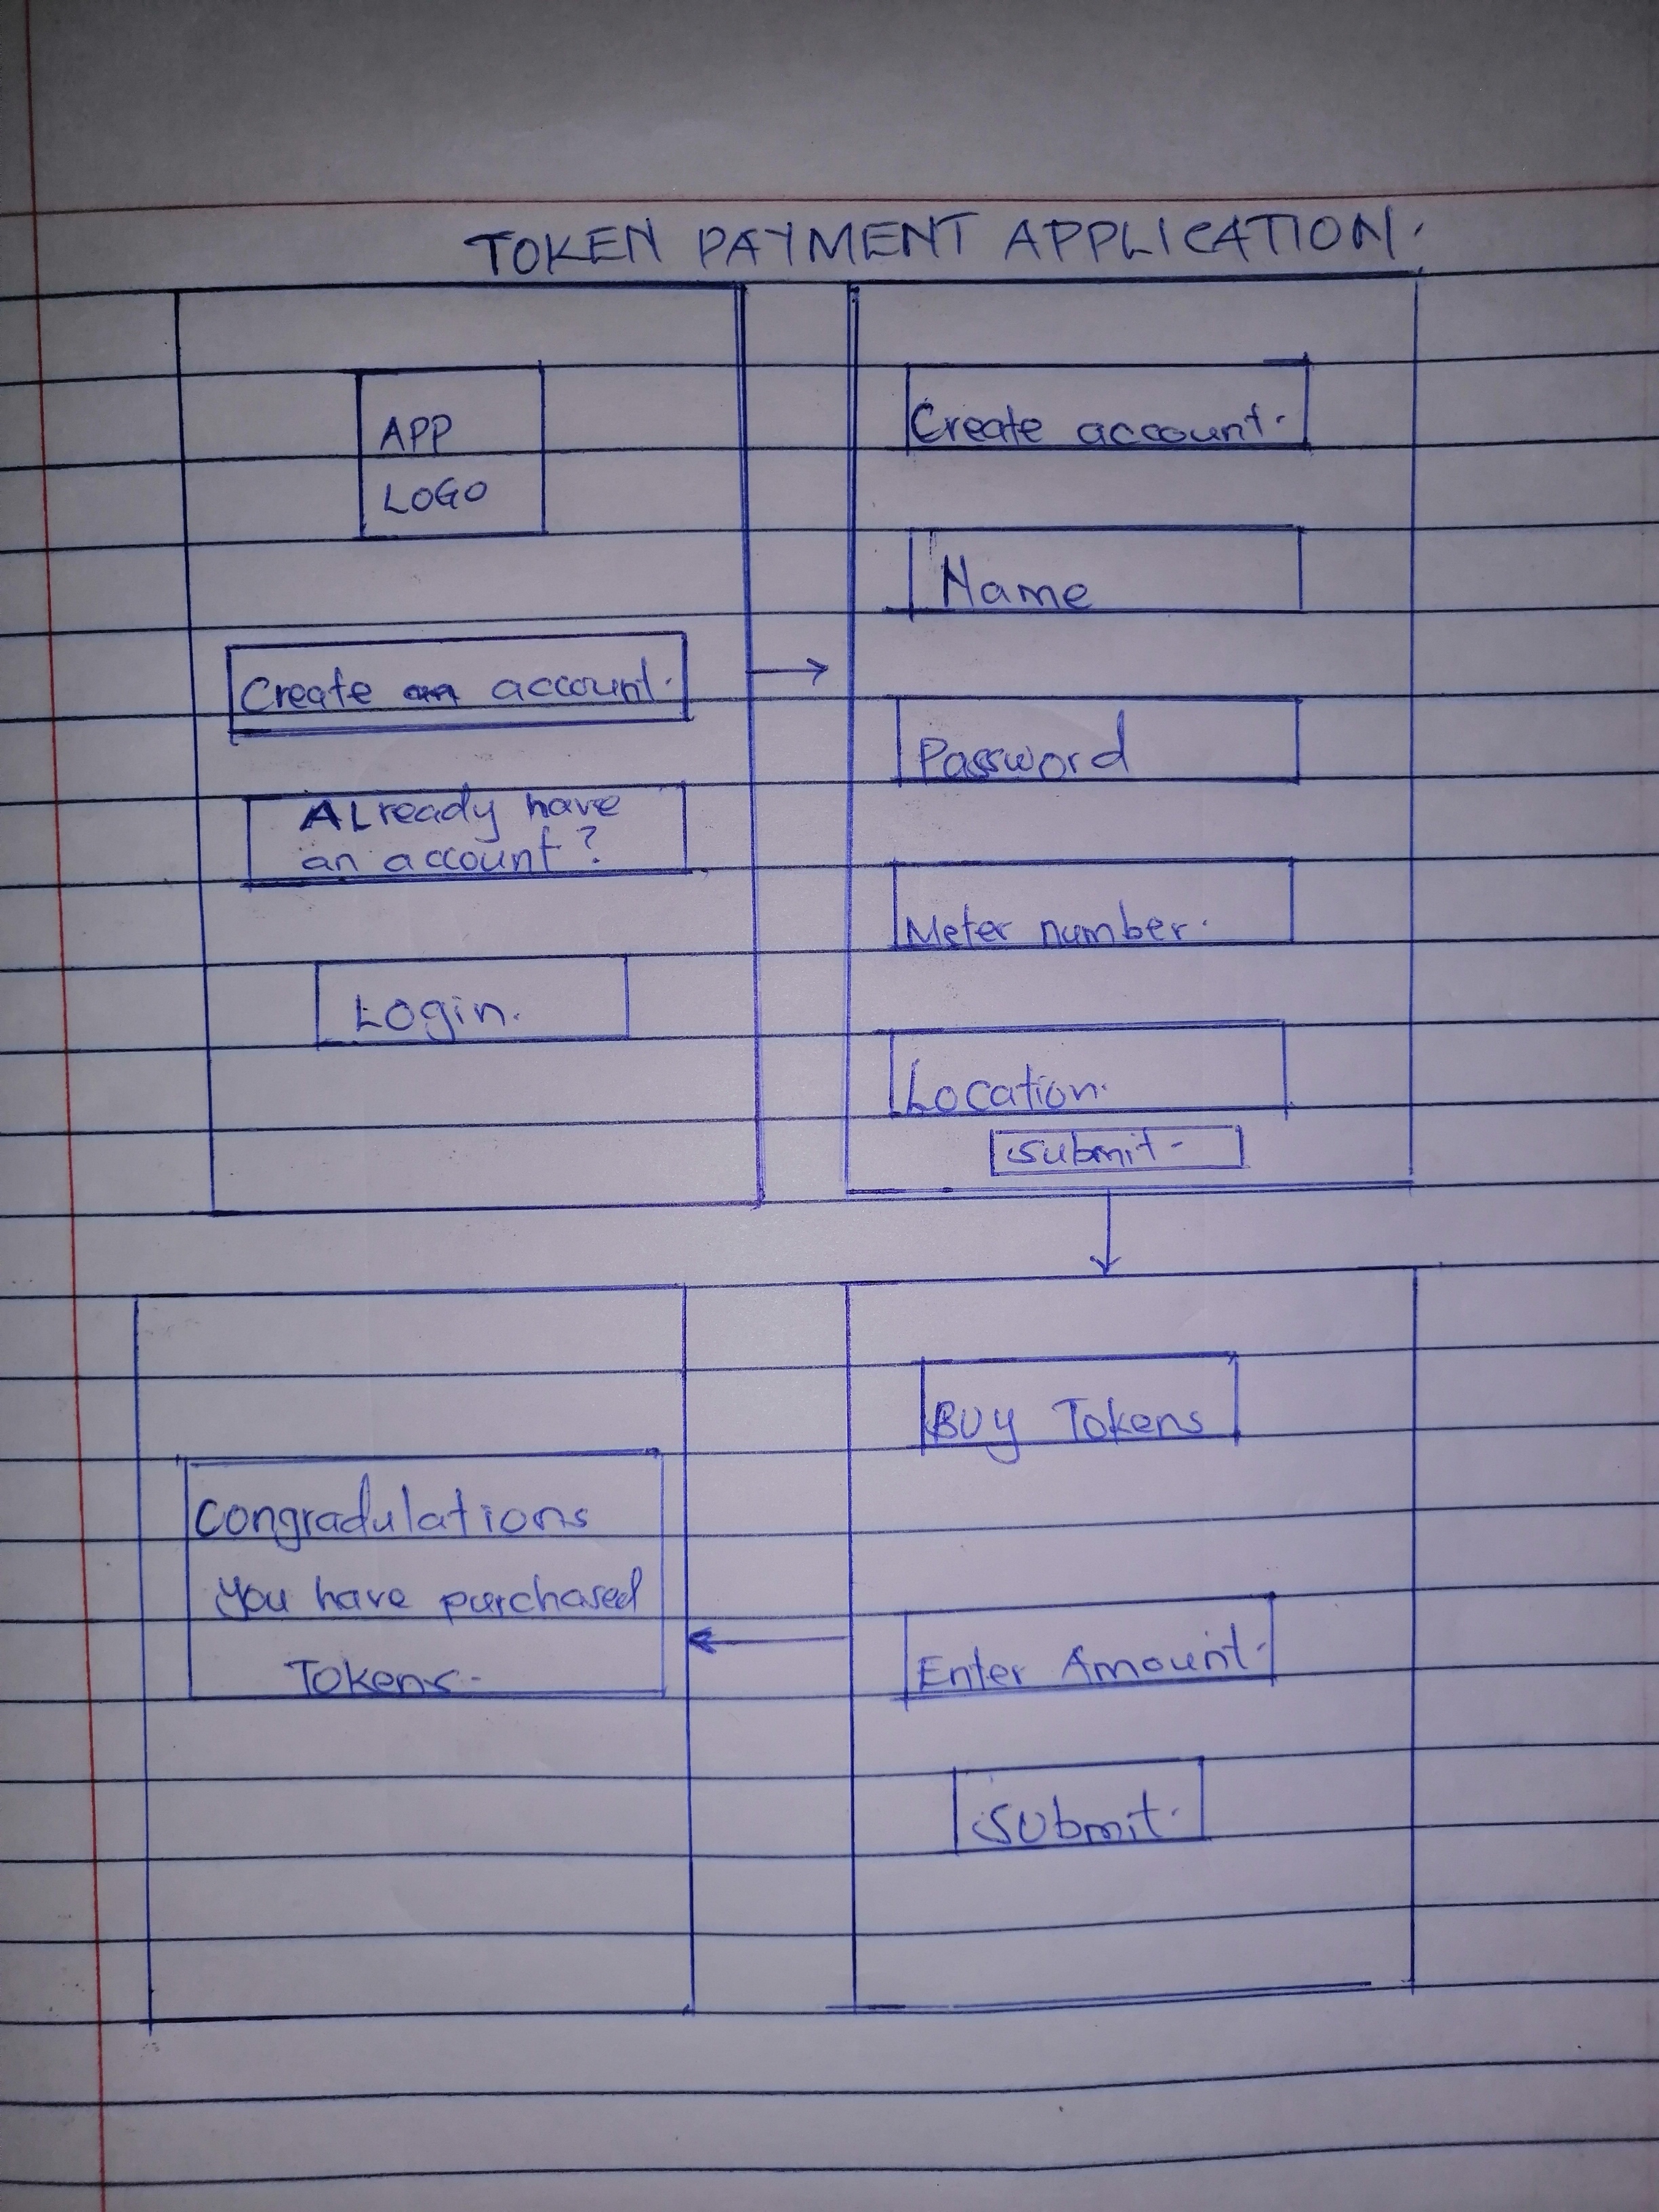 TOKEN PAYMENT APPLICATION.
APP
LOGO
Create an account.
ALready have
an account?
Login.
Create account.
Name
Password
Meter number.
Location.
Submit.
BUY Tokens
Enter Amount.
SUbmit.
Congradulations
You have purchased
Tokens.